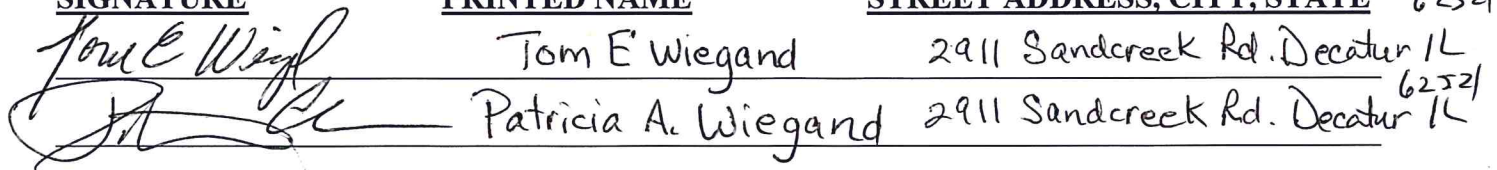 SIGNATURE PRINTED NAME STREET ADDRESS, CITY, STATE 62521
Tom E Wiegand Tom E Wiegand 2911 Sandcreek Rd. Decatur IL
62521
Patricia A. Wiegand 2911 Sandcreek Rd. Decatur IL